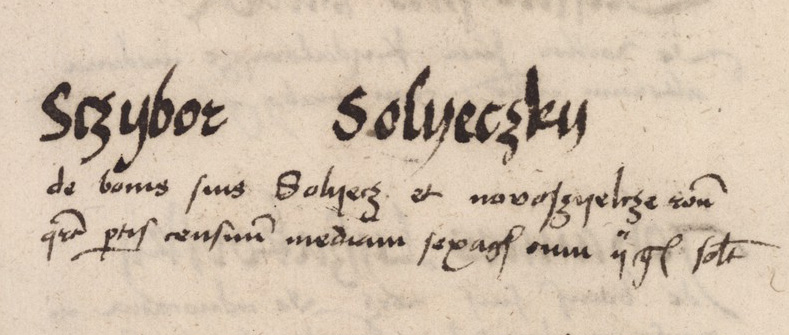 Sczybor Solyeczky
de bonis suis Solyecz et novoszyelcze
censuum mediam sexag cum ij gs solt